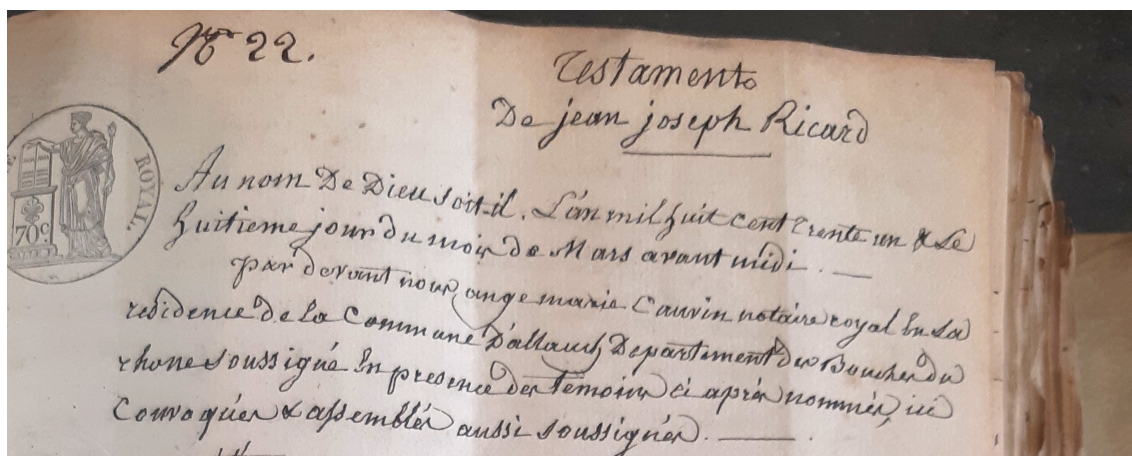 No 22.
Testament
De jean joseph Ricard
ROYAL.
70c
Au nom De Dieu soit-il. L'an mil huit cent trente un & Le
huitieme jour du mois de Mars avant midi. —
par devant nous ange marie Cauvin notaire royal En La
residence de la Commune D'allauch Departement des Bouches du
rhone soussigné En presence des temoins ci après nommés, ici
Convoqués & assemblés aussi soussignés. —